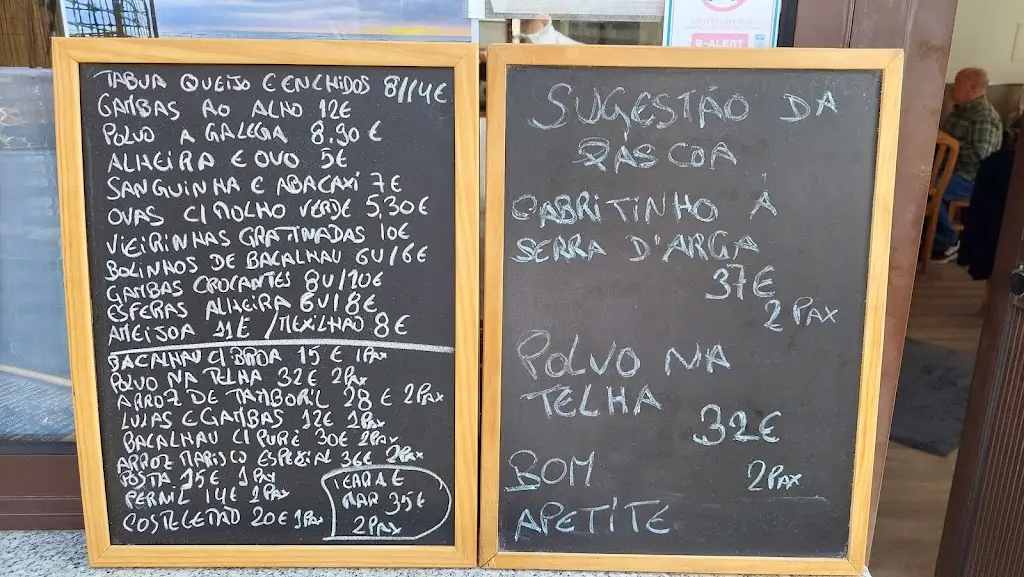 B-ALERT
TABUA QUEIJO E ENCHIDOS 8/14€
GAMBAS AO ALHO 12€
POLVO A GALEGA 8,90 €
ALHEIRA E OVO 5€
SANGUINHA E ABACAXI 7€
OVAS C/ MOLHO VERDE 5,30€
VIEIRINHAS GRATINADAS 10€
BOLINHOS DE BACALHAU 6U/6€
GAMBAS CROCANTES 8U/10€
ESFERAS ALHEIRA 6U/8€
AMEIJOA 11€ / MEXILHÃO 8€
BACALHAU C/ BROA 15€ 1PAX
POLVO NA TELHA 32€ 2PAX
ARROZ DE TAMBORIL 28€ 2PAX
LULAS E GAMBAS 12€ 1PAX
BACALHAU C/ PURÉ 30€ 2PAX
ARROZ MARISCO ESPECIAL 36€ 2PAX
POSTA 15€ 1PAX
PERNIL 14€ 1PAX
COSTELETÃO 20€ 1PAX
TERRA E
MAR 35€
2PAX
SUGESTÃO DA
PÁSCOA
CABRITINHO À
SERRA D'ARGA
37€
2PAX
POLVO NA
TELHA
32€
2PAX
BOM
APETITE